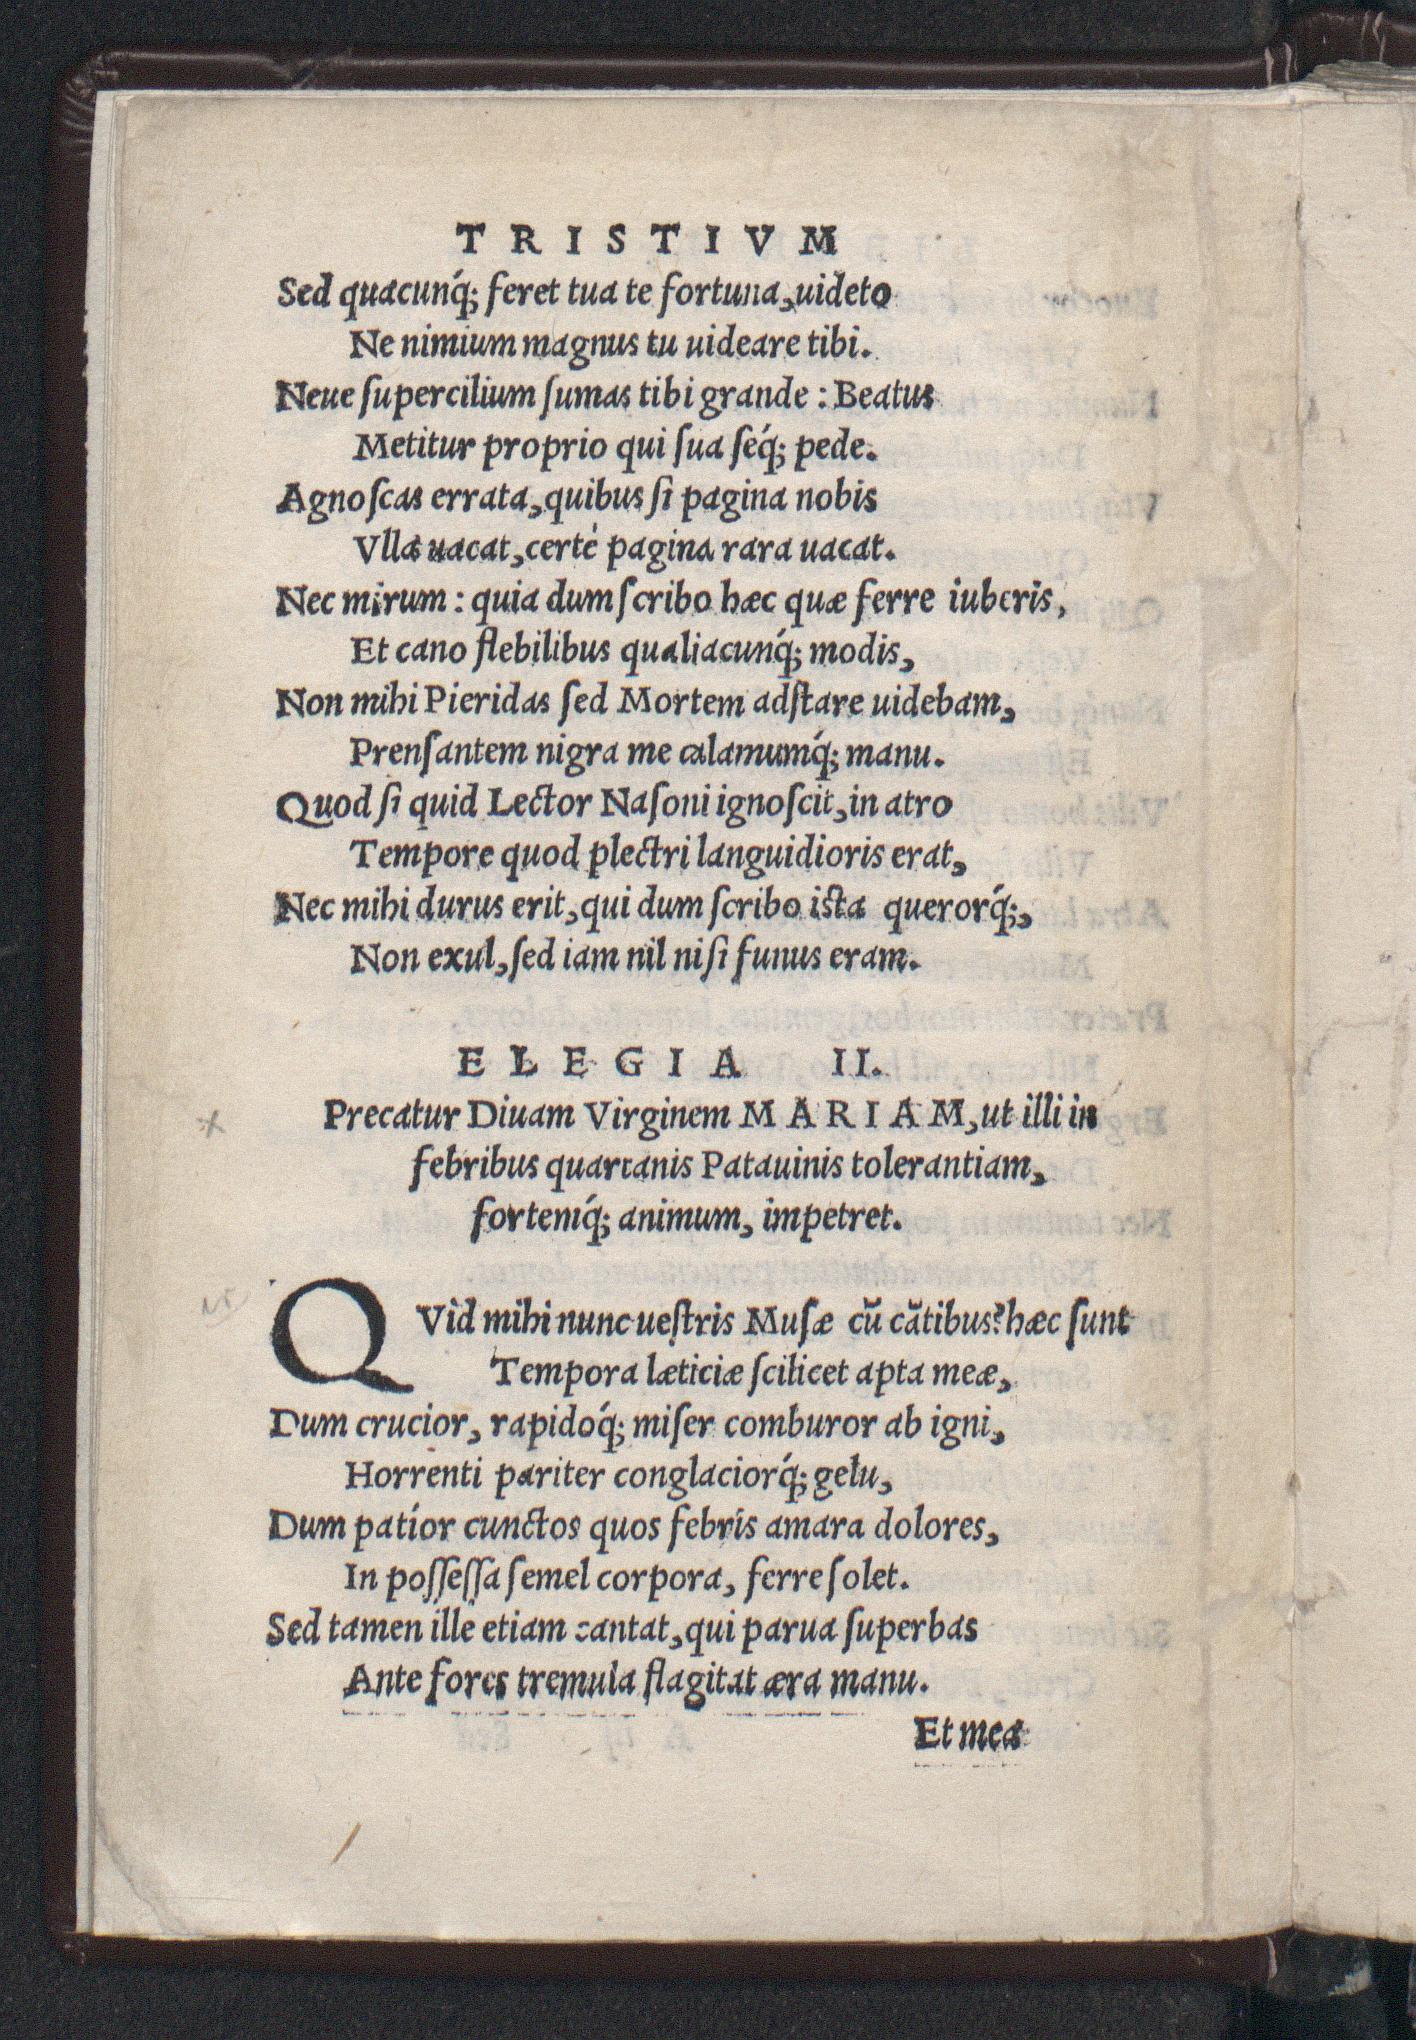 TRISTIVM
Sed quacunq́; feret tua te fortuna, uideto
Ne nimium magnus tu uideare tibi.
Neue ſupercilium ſumas tibi grande : Beatus
Metitur proprio qui ſua ſeq́; pede.
Agnoſcas errata, quibus ſi pagina nobis
Vlla uacat, certè pagina rara uacat.
Nec mirum : quia dum ſcribo hæc quæ ferre iuberis,
Et cano flebilibus qualiacunq́; modis,
Non mihi Pieridas ſed Mortem adſtare uidebam,
Prenſantem nigra me calamumq́; manu.
Quod ſi quid Lector Naſoni ignoſcit, in atro
Tempore quod plectri languidioris erat,
Nec mihi durus erit, qui dum ſcribo ista querorq́;,
Non exul, ſed iam nil niſi funus eram.
ELEGIA II.
Precatur Diuam Virginem MARIAM, ut illi in
febribus quartanis Patauinis tolerantiam,
fortemq́; animum, impetret.
QVìd mihi nunc ueſtris Muſæ cū cātibus? hæc ſunt
Tempora læticiæ ſcilicet apta meæ,
Dum crucior, rapidoq́; miſer comburor ab igni,
Horrenti pariter conglaciorq́; gelu,
Dum patíor cunctos quos febrís amara dolores,
In poſſeſſa ſemel corpora, ferre ſolet.
Sed tamen ille etiam cantat, qui parua ſuperbas
Ante fores tremula flagitat æra manu.
Et mea